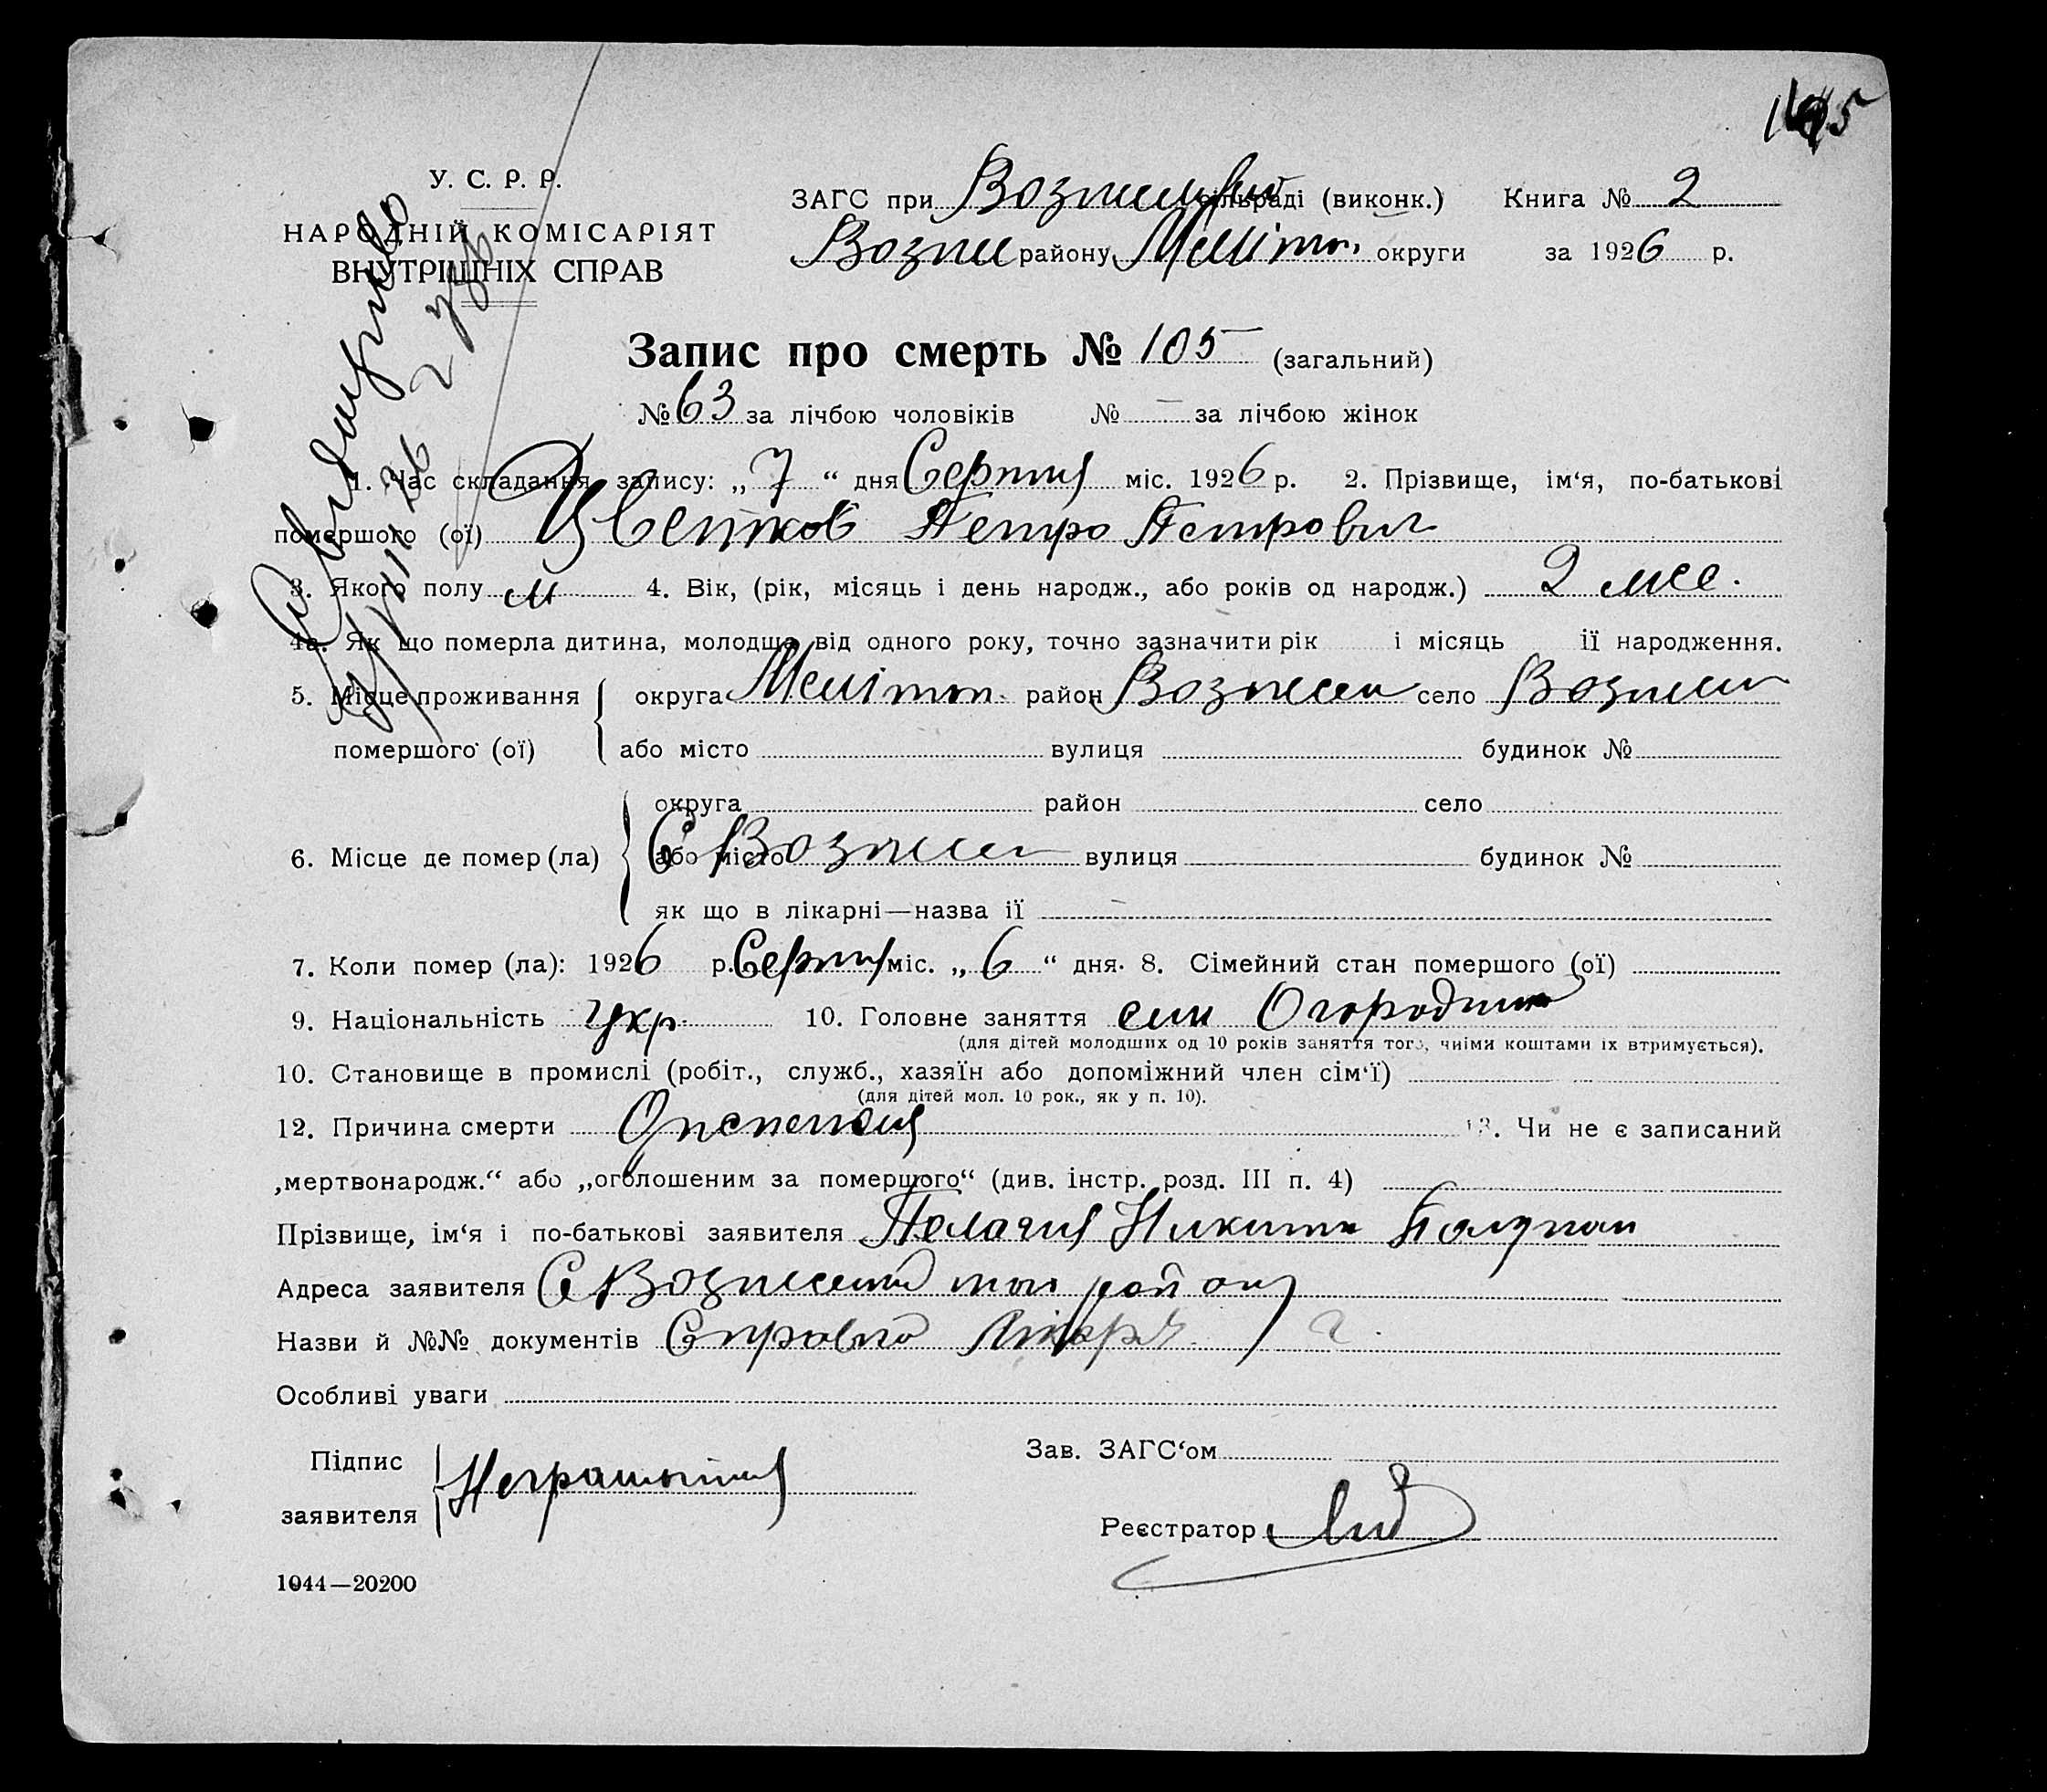 У. С. Р. Р.
НАРОДНІЙ КОМІСАРІЯТ
ВНУТРІШНІХ СПРАВ
ЗАГС при Вознесен сільраді (виконк.) Книга № 2
Возне району Меліт. округи за 1926 р.
Запис про смерть № 105 (загальний)
№ 63 за лічбою чоловіків № — за лічбою жінок
1. Час складання запису: „ 7 “ дня Серпня міс. 1926 р. 2. Прізвище, ім‘я, по-батькові
помершого (ої) Цветков Петро Петрович
3. Якого полу м 4. Вік, (рік, місяць і день народж., або років од народж.) 2 мес.
4а. Як що померла дитина, молодща від одного року, точно зазначити рік і місяць її народження.
5. Місце проживання помершого (ої) округа Меліт. район Вознесен село Вознесен
або місто вулиця будинок №
6. Місце де помер (ла) округа район село
або місто С Вознесен вулиця будинок №
як що в лікарні—назва її —
7. Коли помер (ла): 1926 р. Серпня міс. „ 6 “ дня. 8. Сімейний стан помершого (ої)
9. Національність Укр. 10. Головне заняття син Огородник
(для дітей молодших од 10 років заняття того, чиїми коштами їх втримується).
10. Становище в промислі (робіт., служб., хазяїн або допоміжний член сім‘ї)
(для дітей мол. 10 рок., як у п. 10).
12. Причина смерти 13. Чи не є записаний
„мертвонародж.“ або „оголошеним за помершого“ (див. інстр. розд. III п. 4)
Прізвище, ім‘я і по-батькові заявителя Пелагия Никит
Адреса заявителя С Вознесенка району
Назви й №№ документів Справка Лікаря
Особливі уваги
Підпис заявителя Неграмотня
Зав. ЗАГС‘ом
Реєстратор
1044—20200